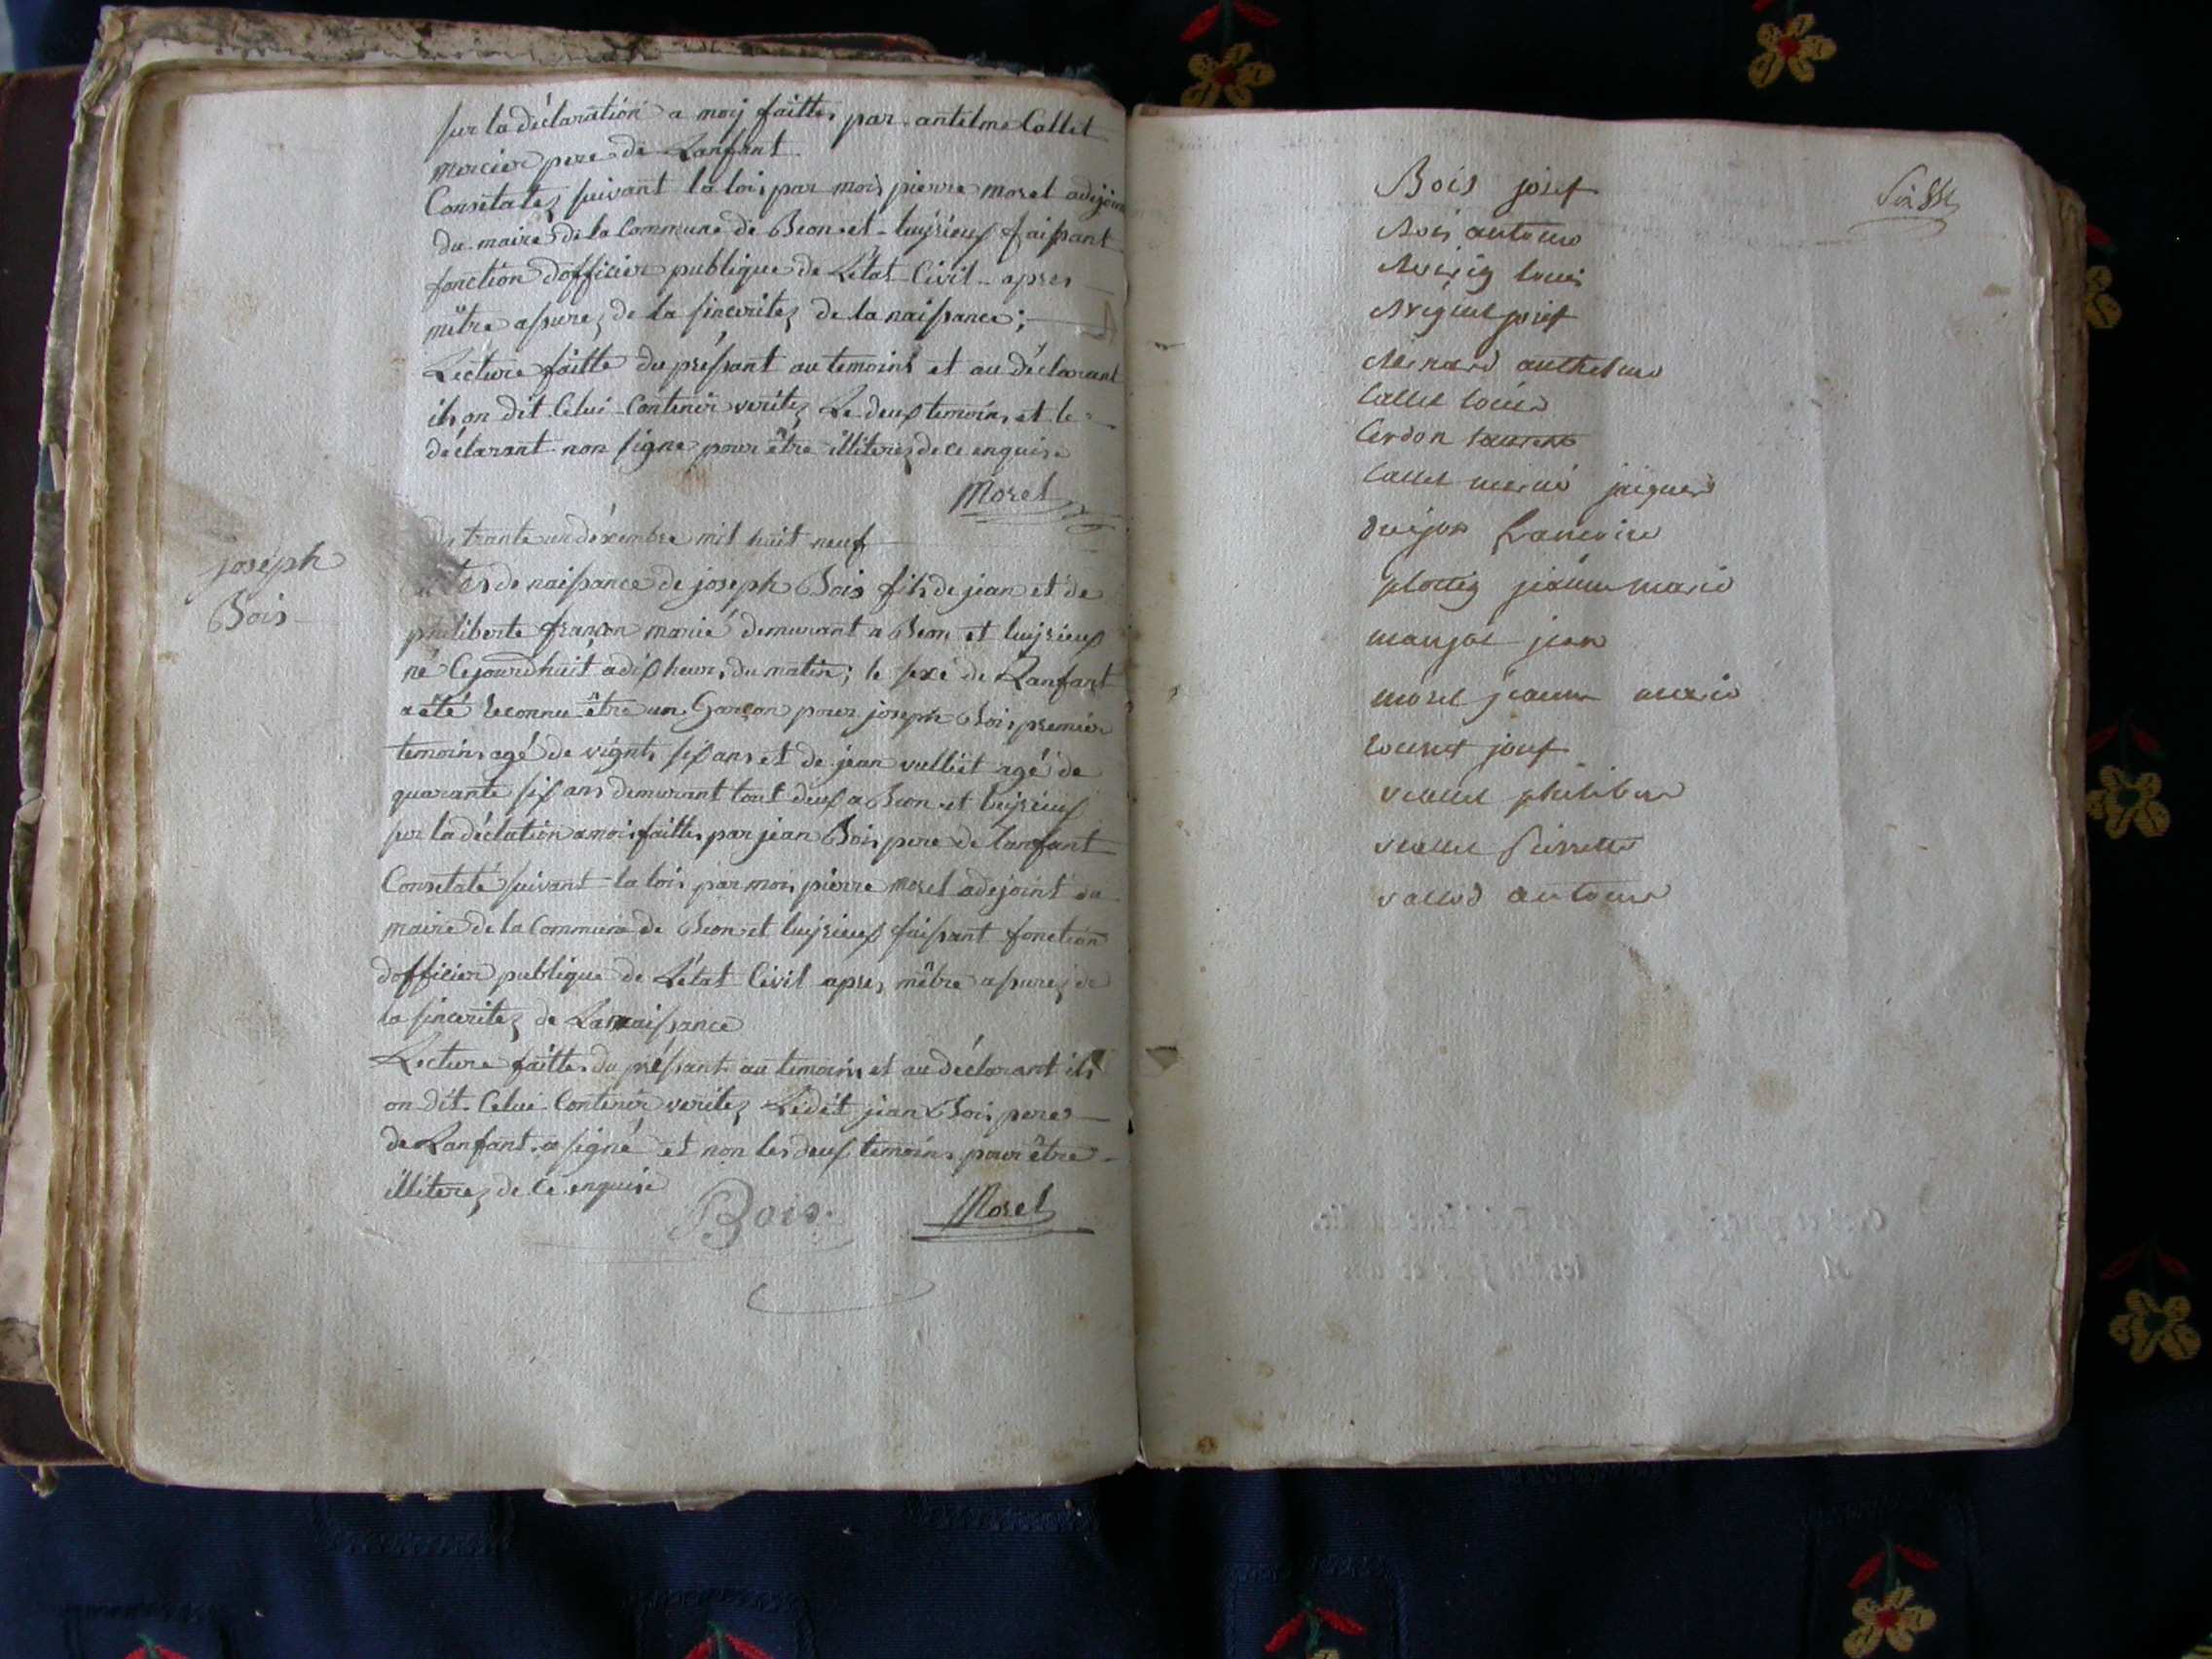 sur la déclaration a moij faittes par antelme Collet
mercier pere de Lanfant
Consetatez suivant la lois par mois pierre morel adejoint
du maire de la Commune de Beon et luijrieux faissant
fonction dofficier publique de Létat Civil apres
mêtre assurez de la sinceritez de la naissance;
Lecture faitte du préssant au temoins et au déclarant
ils on dit Celui Contenir veritez Le deux temoins et le
déclarant non signe pour être illiterez de ce enquise
Morel
trante un déxembre mil huit neuf
joseph
Bois
de naissance de joseph Bois fils de jean et de
philiberte françon marié demurant a Beon et luijrieux
né Cejourdhuit a dix heurs du matin; le sexe de Lanfant
a été Reconnu être un Garçon pour joseph Bois premier
temoins agé de vignts six ans et de jean vulliet agé de
quarante six ans demurant tout deux a Beon et luijrieux
sur la déclation a mois faittes par jean Bois pere de lanfant
Consetaté suivant la lois par mois pierre morel adejoint du
maire de la Commune de Beon et luijrieux faissant fonction
dofficier publique de Létat Civil apres mêtre assurez de
la sinceritez de Lanaissance
Lecture faittes du préssant au temoins et au déclarant ils
on dit Celui Contenir veritez Ledit jean Bois peres
de Lanfant a signé et non les deux temoins pour être
illiterez de Ce enquise
Bois
Morel
Bois josef
Bois antoine
louis
josef
anthelme
Collet louis
Cerdon laurent
Collet jacques
francoise
jeanne marie
jean
morel jeanne marie
josef
philibert
pierrette
vallod antoine